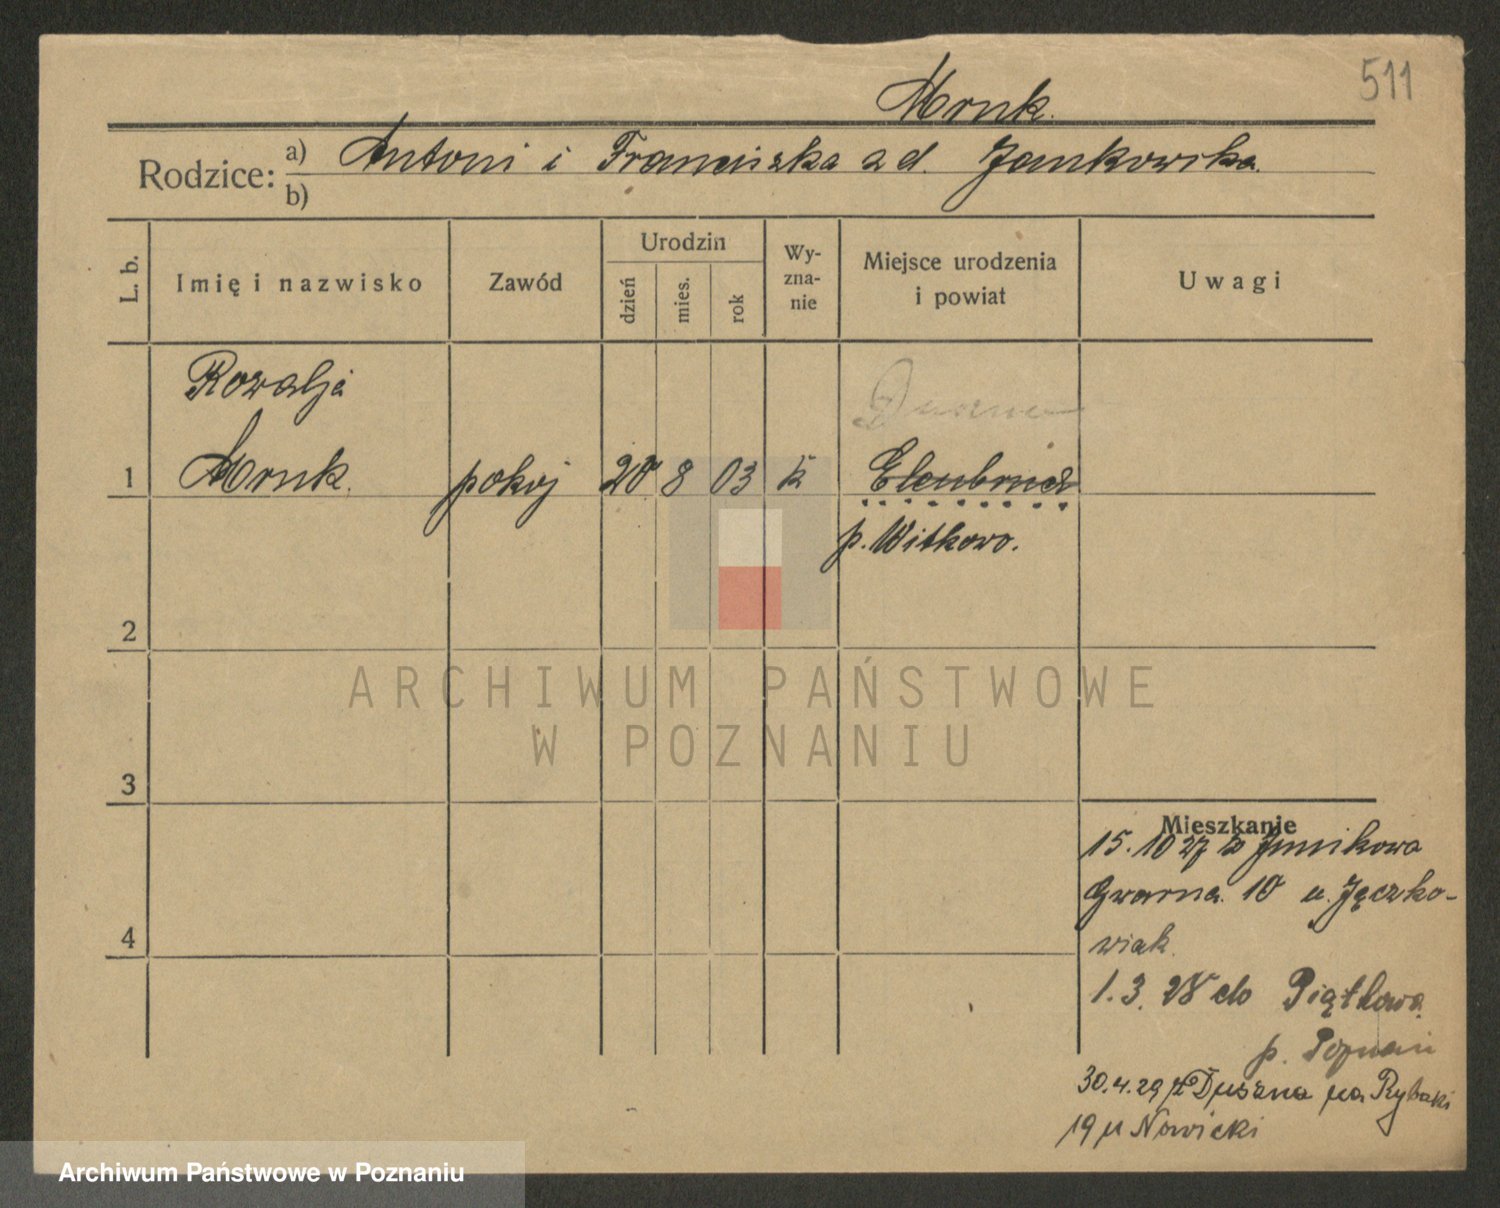 511
Mrnk.
Rodzice: a) Antoni i Franciszka z d. Jankowska.
b)
L. b.
Imię i nazwisko
Zawód
Urodzin
dzień
mies.
rok
Wy-
zna-
nie
Miejsce urodzenia
i powiat
Uwagi
Rozalja
1 Mrnk. pokoj 20 8 03 k
p. Witkowo.
2
3
4
Mieszkanie
15. 10 27 z Junikowa
Gwarna 10 u. Jączko-
wiak.
1. 3. 28 do Piątkowa
p. Poznań
30.4.29 z Duszna na Rybaki
19 u Nowicki
ARCHIWUM PAŃSTWOWE
W POZNANIU
Archiwum Państwowe w Poznaniu